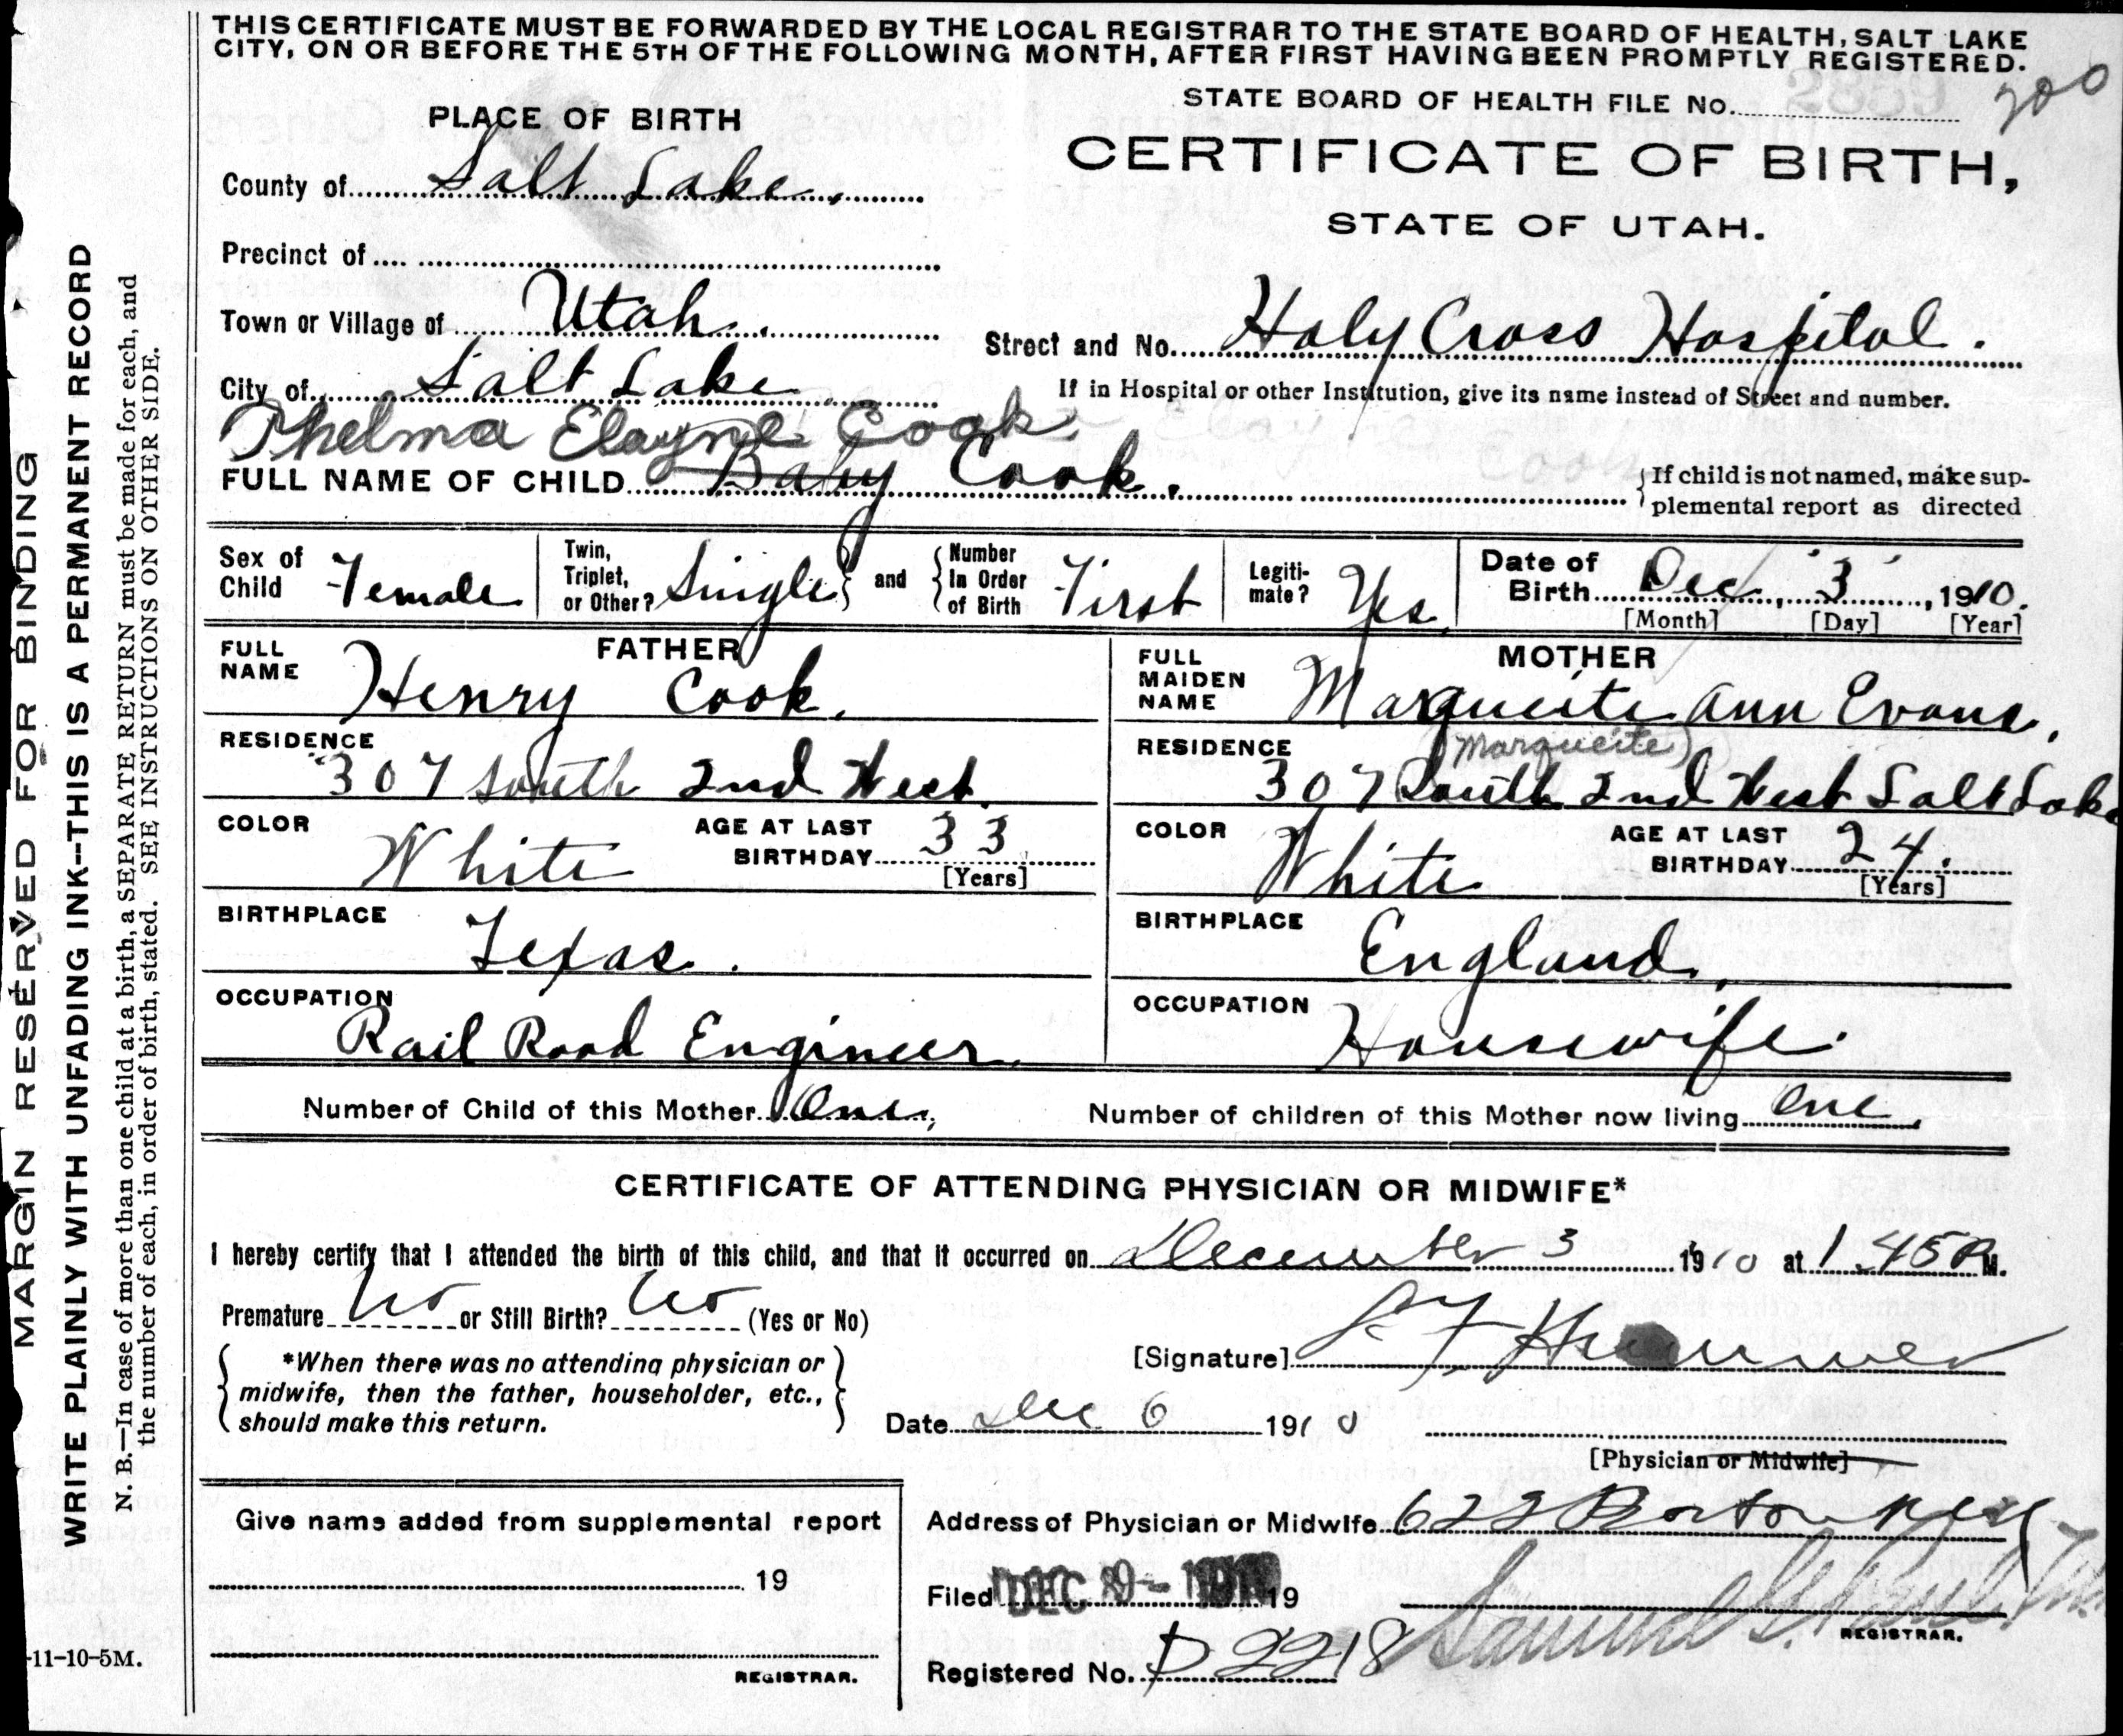 THIS CERTIFICATE MUST BE FORWARDED BY THE LOCAL REGISTRAR TO THE STATE BOARD OF HEALTH, SALT LAKE
CITY, ON OR BEFORE THE 5TH OF THE FOLLOWING MONTH, AFTER FIRST HAVING BEEN PROMPTLY REGISTERED.
STATE BOARD OF HEALTH FILE No. 2859 200
PLACE OF BIRTH
CERTIFICATE OF BIRTH,
STATE OF UTAH.
County of Salt Lake.
Precinct of
Town or Village of Utah.
Street and No. Holy Cross Hospital.
City of Salt Lake
If in Hospital or other Institution, give its name instead of Street and number.
Thelma Elayne Cook
FULL NAME OF CHILD Baby Cook.
If child is not named, make sup-
plemental report as directed
Sex of Child Female
Twin, Triplet, or Other? Single
and
Number In Order of Birth First
Legiti-mate? Yes.
Date of Birth Dec, 3, 1910.
[Month] [Day] [Year]
FATHER
FULL NAME Henry Cook.
RESIDENCE
307 South 2nd West.
COLOR White
AGE AT LAST BIRTHDAY 33
[Years]
BIRTHPLACE
Texas.
OCCUPATION
Rail Road Engineer.
MOTHER
FULL MAIDEN NAME Margueite Ann Evans.
(Marqueite)
RESIDENCE
307 South 2nd West Salt Lake
COLOR White
AGE AT LAST BIRTHDAY 24.
[Years]
BIRTHPLACE
England.
OCCUPATION
Housewife.
Number of Child of this Mother One,
Number of children of this Mother now living One.
CERTIFICATE OF ATTENDING PHYSICIAN OR MIDWIFE*
I hereby certify that I attended the birth of this child, and that it occurred on December 3 1910 at 1.45 P M.
Premature No or Still Birth? No (Yes or No)
*When there was no attending physician or
midwife, then the father, householder, etc.,
should make this return.
[Signature]
Date Dec 6 1910
[Physician or Midwife]
Give name added from supplemental report
19
REGISTRAR.
Address of Physician or Midwife 622 Boston
Filed DEC 19
REGISTRAR.
Registered No. D2218
11-10-5M.
MARGIN RESERVED FOR BINDING
WRITE PLAINLY WITH UNFADING INK--THIS IS A PERMANENT RECORD
N. B.—In case of more than one child at a birth, a SEPARATE RETURN must be made for each, and
the number of each, in order of birth, stated. SEE INSTRUCTIONS ON OTHER SIDE.